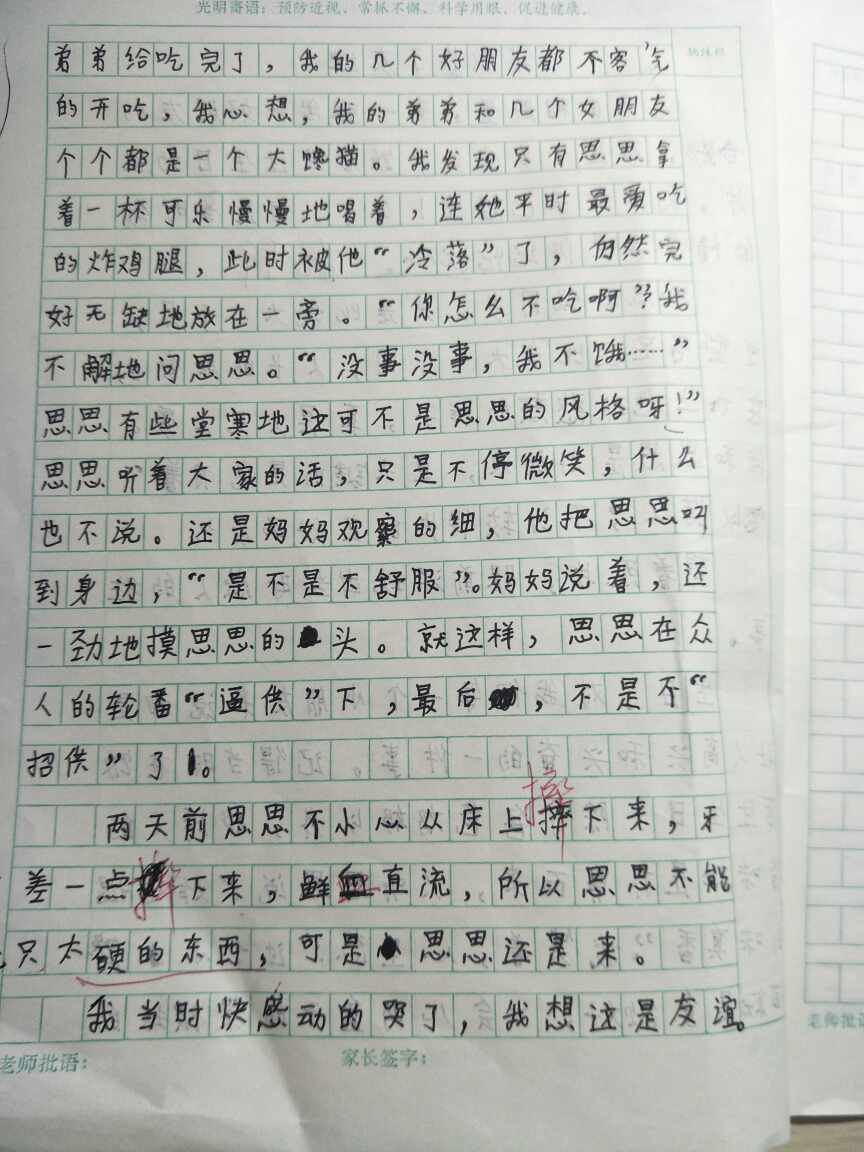 光明寄语：预防近视、常抓不懈、科学用眼、促进健康.
弟弟给吃完了，我的几个好朋友都不客气
的开吃，我心想，我的弟弟和几个女朋友
个个都是一个大馋猫。我发现只有思思拿
着一杯可乐慢慢地唱着，连她平时最爱吃
的炸鸡腿，此时被他“冷落”了，仍然完
好无缺地放在一旁。“你怎么不吃啊”？我
不解地问思思。“没事没事，我不饿……”
思思有些堂寒地这可不是思思的风格呀！”
思思听着大家的话，只是不停微笑，什么
也不说。还是妈妈观察的细，他把思思叫
到身边，“是不是不舒服”。妈妈说着，还
一劲地摸思思的头。就这样，思思在众
人的轮番“逼供”下，最后，不是不“
招供”了。
摔
两天前思思不小心从床上摔下来，牙
差一点摔下来，鲜血直流，所以思思不能
只太硬的东西，可是思思还是来。
我当时快感动的哭了，我想这是友谊。
老师批语：
家长签字：
老师批语